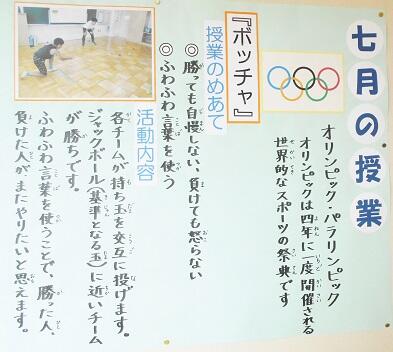 七月の授業
オリンピック・パラリンピック
オリンピックは四年に一度開催される
世界的なスポーツの祭典です
『ボッチャ』
授業のめあて
◎勝っても自慢しない、負けても怒らない
◎ふわふわ言葉を使う
活動内容
各チームが持ち玉を交互に投げます。
ジャックボール(基準となる玉)に近いチーム
が勝ちです。
ふわふわ言葉を使うことで、勝った人、
負けた人がまたやりたいと思えます。